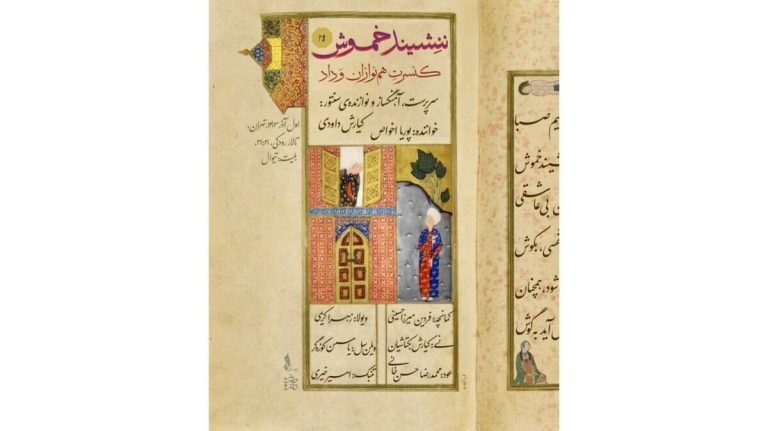 ننشیند خموش
کنسرت هم‌نوازان وَداد
سرپرست، آهنگساز و نوازنده‌ی سنتور:
کیارش داودی
خواننده: پوریا اخواص
اول آذر ۱۴۰۳، تهران،
تالار رودکی، ۲۱:۳۰
بلیت: تیوال
کمانچه: فردین میرزاحسینی
نی: کیارش
عود: محمدرضا حسن‌خانی
ویولا: زهرا
ویلن‌سل: یاسمن کوزه‌گر
تنبک: امیر خیری
یم صبا
شیند خموش
ن بی عاشقی
بگوش
شود، همچنان
ش آید به گوش